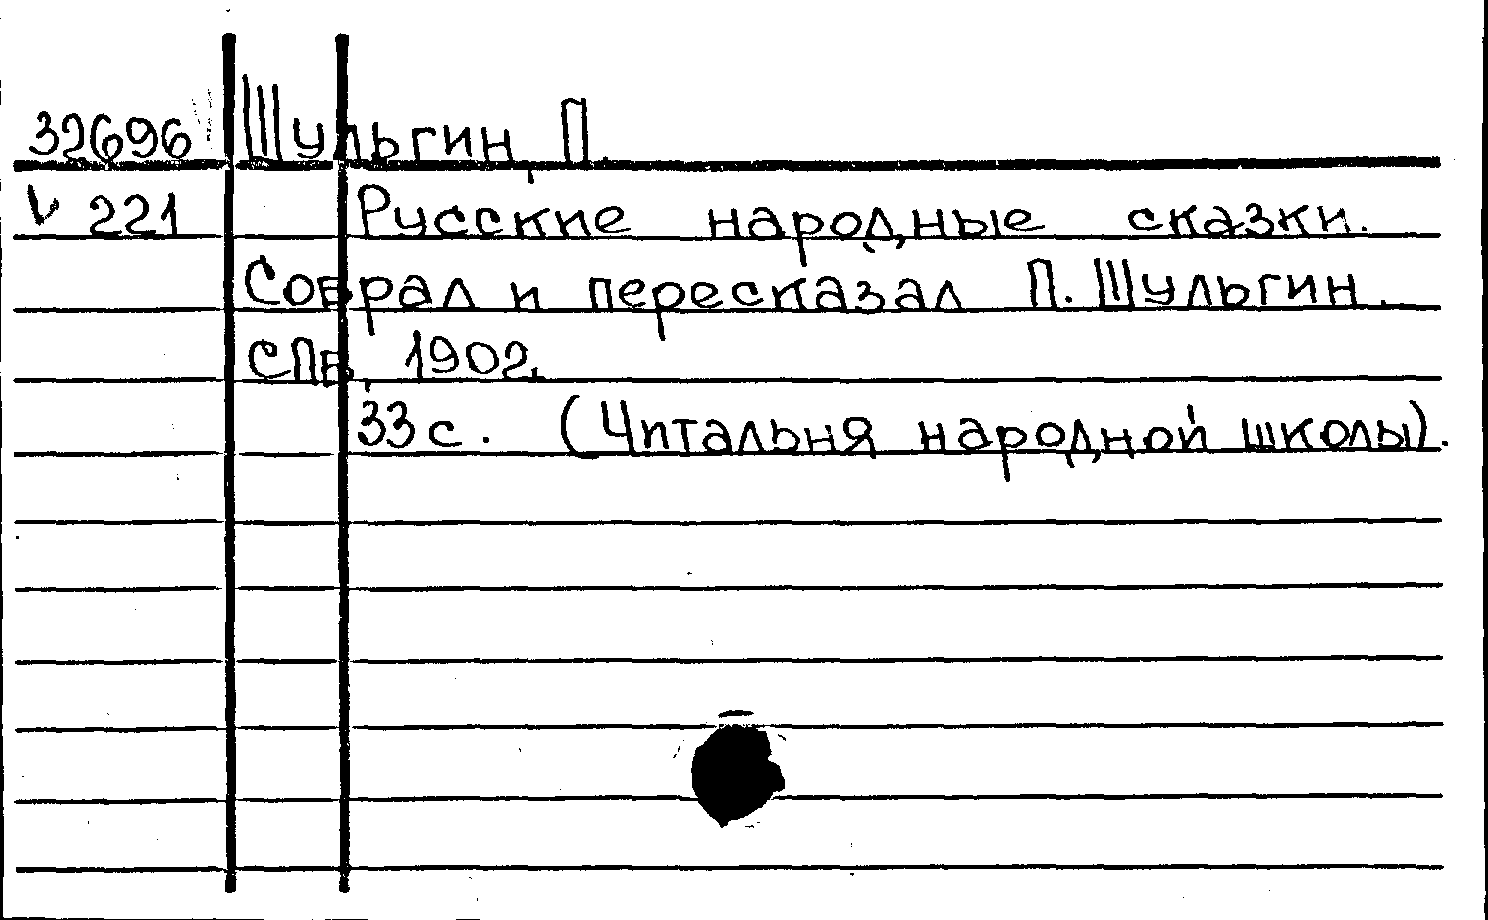 32696 Шульгин, П.
V 221 Русские народные сказки.
Собрал и пересказал П. Шульгин.
СПБ, 1902.
33 с. (Читальня народной школы).